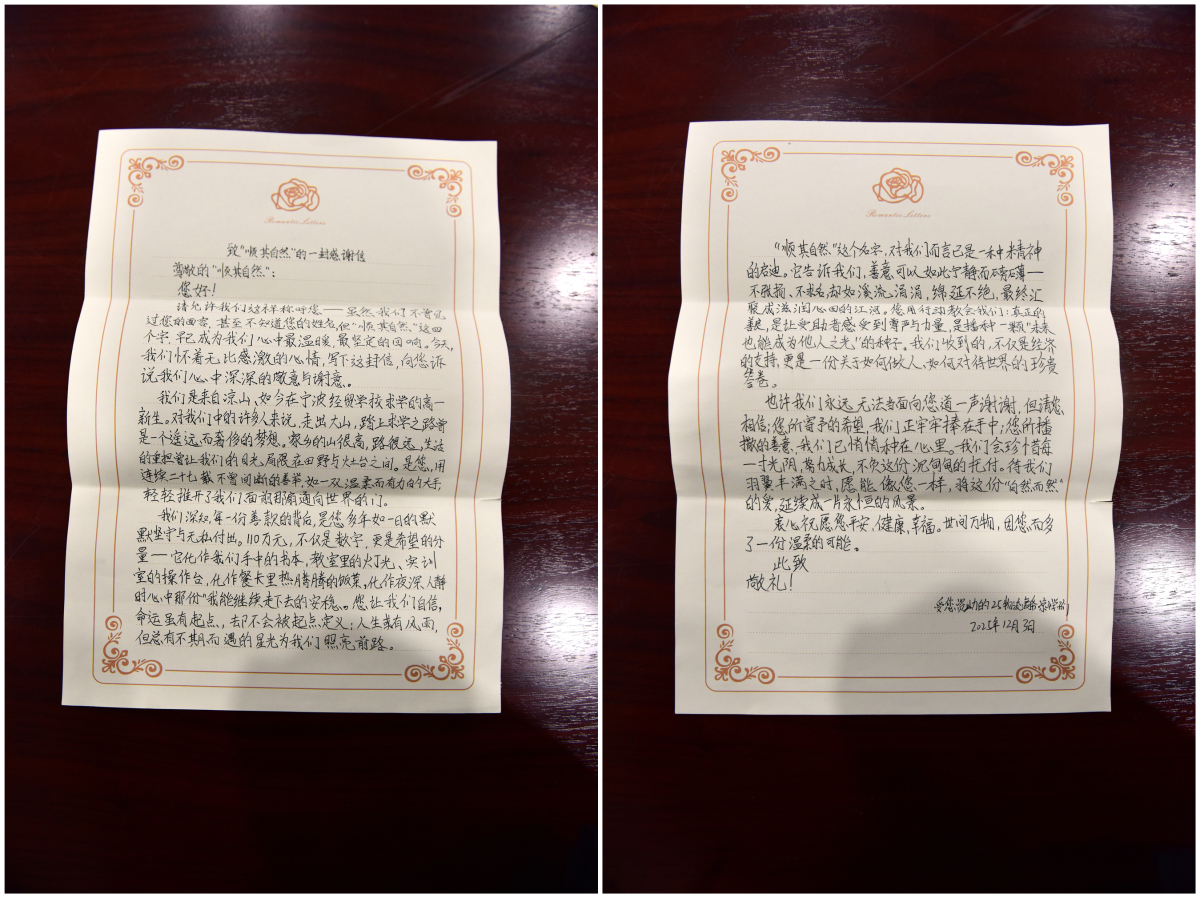 Romantic Letters
致"顺其自然"的一封感谢信
尊敬的"顺其自然":
您好!
请允许我们这样称呼您——虽然我们不曾见
过您的面容,甚至不知道您的姓名,但"顺其自然"这四
个字,早已成为我们心中最温暖、最坚定的回响。今天,
我们怀着无比感激的心情,写下这封信,向您诉
说我们心中深深的敬意与谢意。
我们是来自凉山、如今在宁波经贸学校求学的高一
新生。对我们中的许多人来说,走出大山,踏上求学之路曾
是一个遥远而奢侈的梦想。家乡的山很高,路很远,生活
的重担曾让我们的目光局限在田野与灶台之间。是您,用
连续二十七载不曾间断的善举,如一双温柔而有力的大手,
轻轻推开了我们面前那扇通向世界的门。
我们深知,每一份善款的背后,是您多年如一日的默
默坚守与无私付出。110万元,不仅是数字,更是希望的分
量——它化作我们手中的书本、教室里的灯光、实训
室的操作台,化作餐卡里热腾腾的饭菜,化作夜深人静
时心中那份"我能继续走下去的安稳。您让我们自信,
命运虽有起点,却不会被起点定义;人生或有风雨,
但总有不期而遇的星光为我们照亮前路。
Romantic Letters
"顺其自然"这个名字,对我们而言已是一种精神
的启迪。它告诉我们,善意可以如此宁静而磅礴——
不张扬、不求名,却如溪流涓涓,绵延不绝,最终汇
聚成滋润心田的江河。您用行动教会我们:真正的
善良,是让受助者感受到尊严与力量,是播种一颗"未来
也能成为他人之光"的种子。我们收到的,不仅是经济
的支持,更是一份关于如何做人、如何对待世界的珍贵
答卷。
也许我们永远无法当面向您道一声谢谢,但请您
相信:您所寄予的希望,我们正牢牢捧在手中;您所播
撒的善意,我们已悄悄种在心里。我们会珍惜每
一寸光阴,努力成长,不负这份沉甸甸的托付。待我们
羽翼丰满之时,愿能像您一样,将这份"自然而然"
的爱,延续成一片永恒的风景。
衷心祝愿您平安、健康、幸福。世间万物,因您而多
了一份温柔的可能。
此致
敬礼!
受您资助的25级
2025年12月3日